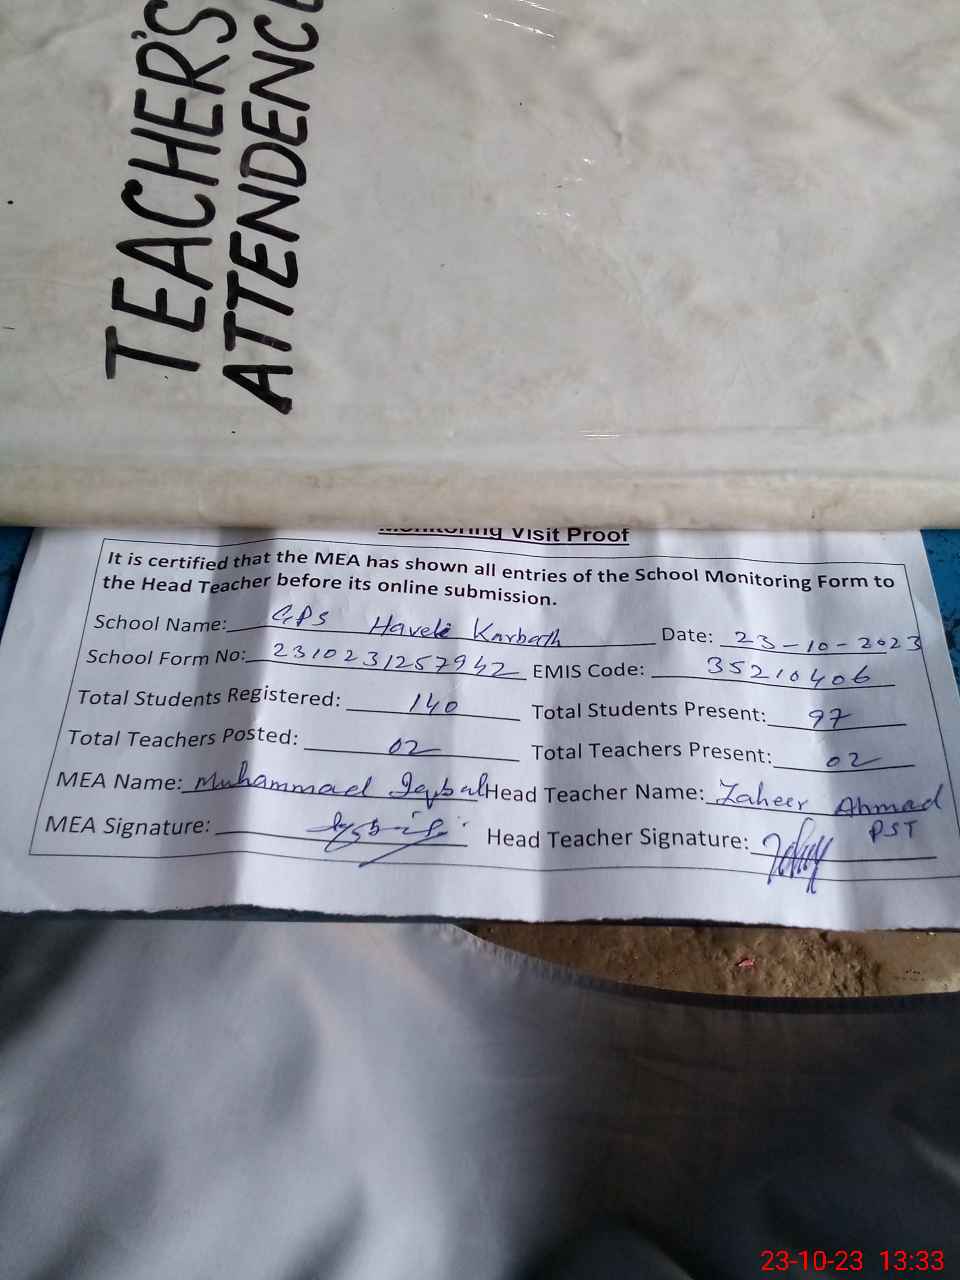 TEACHER'S
ATTENDENCE
Monitoring Visit Proof
It is certified that the MEA has shown all entries of the School Monitoring Form to
the Head Teacher before its online submission.
School Name: GPS Haveli Karbath Date: 23-10-2023
School Form No: 2310231257942 EMIS Code: 35210406
Total Students Registered: 140 Total Students Present: 97
Total Teachers Posted: 02 Total Teachers Present: 02
MEA Name: Muhammad Iqbal Head Teacher Name: Zaheer Ahmad
PST
MEA Signature: Head Teacher Signature:
23-10-23 13:33